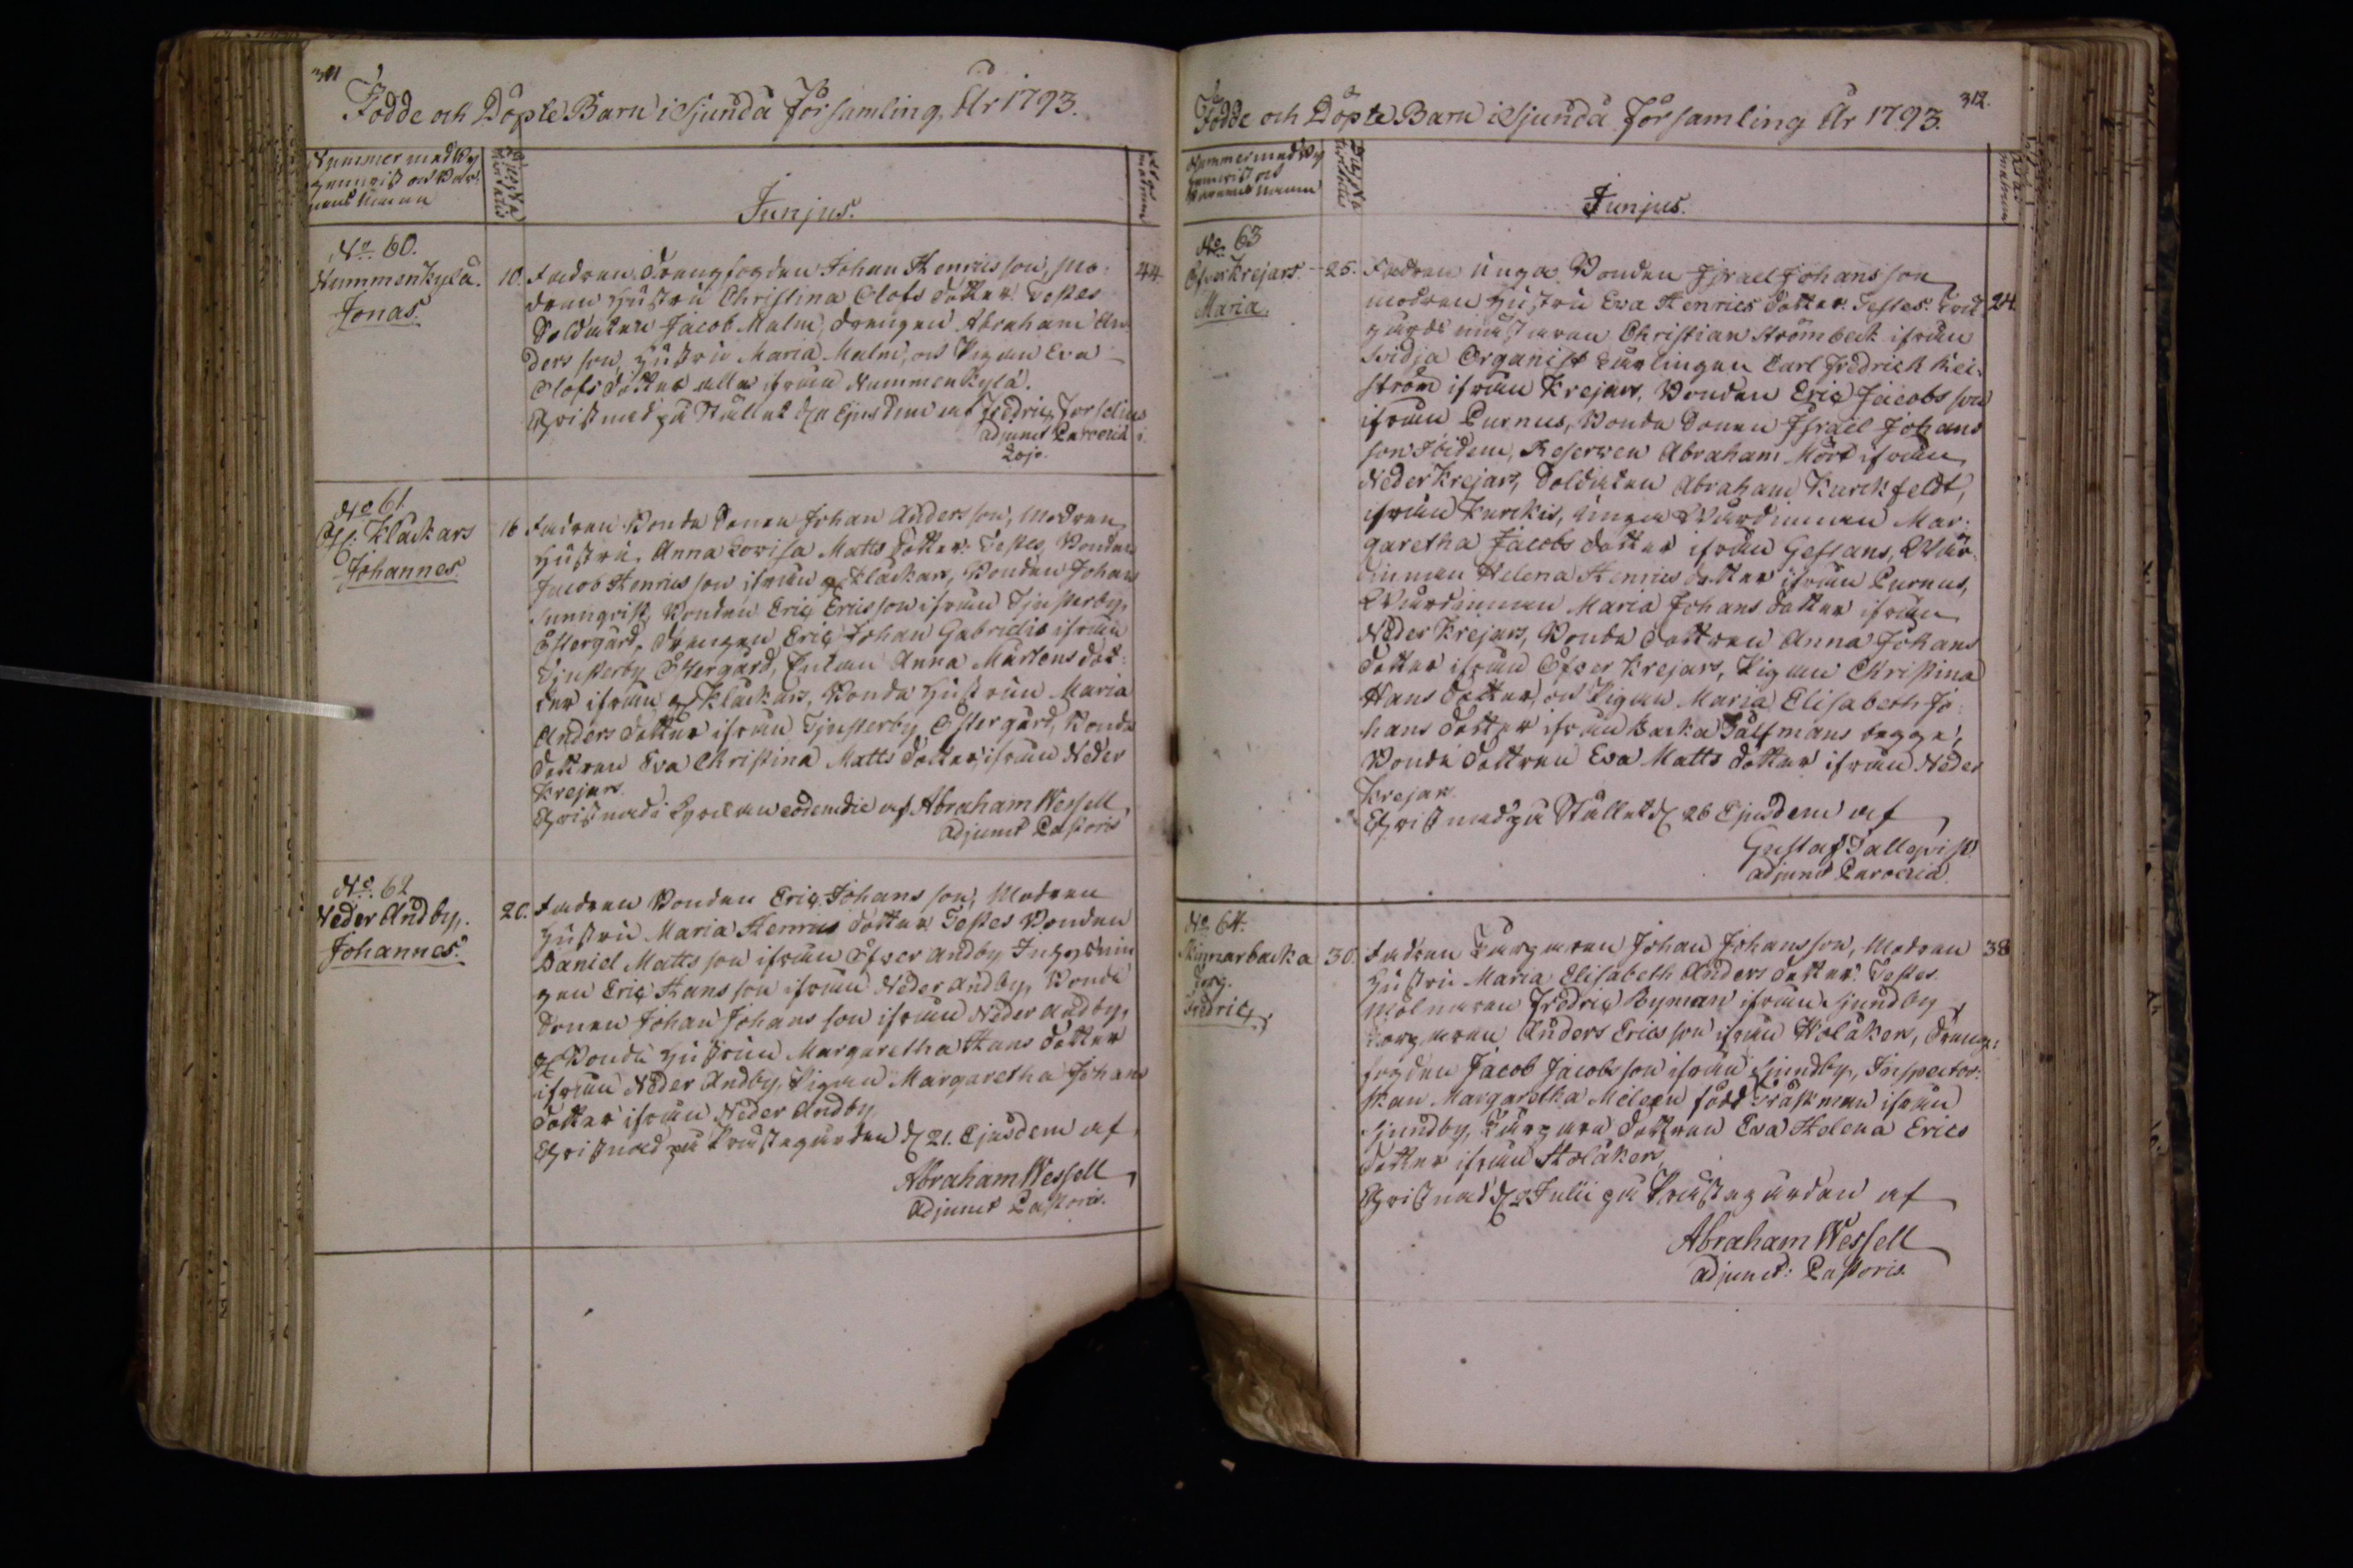 311
Födde och Döpte Barn i Sjundå Församling, År 1793.
Nummer med By
Junjus.
No 60.
Nummenkylä.
Jonas.
10. Fadren Drengfogden Johan Henricsson, Mo-
dren Hustru Christina Olofs dotter. Testes
Soldaten Jacob Malm, drengen Abraham An-
ders son, Hustru Maria Malm, och Pigan Eva
Olofs dotter alla ifrån Nummenkylä.
Christnad på Stället d. Ejusdem af Fredric Forselius
adjunct Paroecia i
Lojo.
44
No 61.
Öf. Kläckars
Johannes.
16 Fadren Bonde Sonen Johan Andersson, Modren
Hustru Anna Lovisa Matts dotter. Testes, Bonden
Jacob Henricsson ifrån Kläckars, Bonden Johan
Sunnqvist, Bonden Eric Ericsson ifrån Tjusterby,
Östergård, Drengen Eric Johan Gabrielis ifrån
Tjusterby Östergård, Enkan Anna Mårtens dot-
ter ifrån Kläckars, Bonde Hustrun Maria
Anders dotter ifrån Tjusterby Östergård, Bonde
dottren Eva Christina Matts dotter, ifrån Neder
Krejars.
Christnad i Kyrckan eodem die af Abraham Wessell
adjunct Pastoris
No 62
Neder Andby.
Johannes.
20. Fadren Bonden Eric Johansson, Modren
Hustru Maria Henrics dotter Testes Bonden
Daniel Mattsson ifrån Öfver Andby
Eric Hansson ifrån Neder Andby, Bonde
Sonen Johan Johansson ifrån Neder Andby,
Bonde Hustrun Margaretha Hans dotter
ifrån Neder Andby, Pigan Margaretha Johans
dotter ifrån Neder Andby
Christnad på Prästegården d. 21. Ejusdem af
Abraham Wessell
Adjunct Pastoris.
312.
Födde och Döpte Barn i Sjundå Församling År 1793.
Nummer med By
Barnens Namn
Junjus.
No 63
Öfver Krejars.
Maria.
25. Fadren Unga Bonden Israel Johansson
modren Hustru Eva Henrics dotter. Testes.
24
gårds mästaren Christian Strömbeck ifrån
Svidja Organist Lärlingen Carl Fredrick
ström ifrån Krejars, Bonden Eric Jacobsson
ifrån Purnus, Bonde Sonen Israel Johans
son Ibidem, Reserven Abraham Mört ifrån
Neder Krejars, Soldaten Abraham Kurckfeldt,
ifrån Kurckis, unga Wärdinnan Mar-
garetha Jacobs dotter ifrån Gessans, Wär-
dinnan Helena Henrics dotter ifrån Purnus,
Wärdinnan Maria Johans dotter ifrån
Neder Krejars, Bonde dottren Anna Johans
dotter ifrån Öfver Krejars, Pigan Christina
Hans dotter, och Pigan Maria Elisabeth Jo-
hans dotter ifrån Backa begge,
Bonde dottren Eva Matts dotter ifrån Neder
Krejars.
Christnad på Stället d. 26 Ejusdem af
Gustaf Tallqvist
adjunct Paroecia.
No 64.
Skinnarbacka
Torp.
Fredric.
30. Fadren Torparen Johan Johansson, Modren
38
Hustru Maria Elisabeth Anders dotter. Testes.
Mölnaren Fredric Byman ifrån Sjundby,
Torparen Anders Ericsson ifrån Holåkers, Dreng-
fogden Jacob Jacobsson ifrån Sjundby, Inspector-
skan Margaretha Meleen född Träskman ifrån
Sjundby, Torpare dottren Eva Helena Erics
dotter ifrån Holåkers,
Christnad d. 2 Julii på Prästegården af
Abraham Wessell
adjunct: Pastoris.